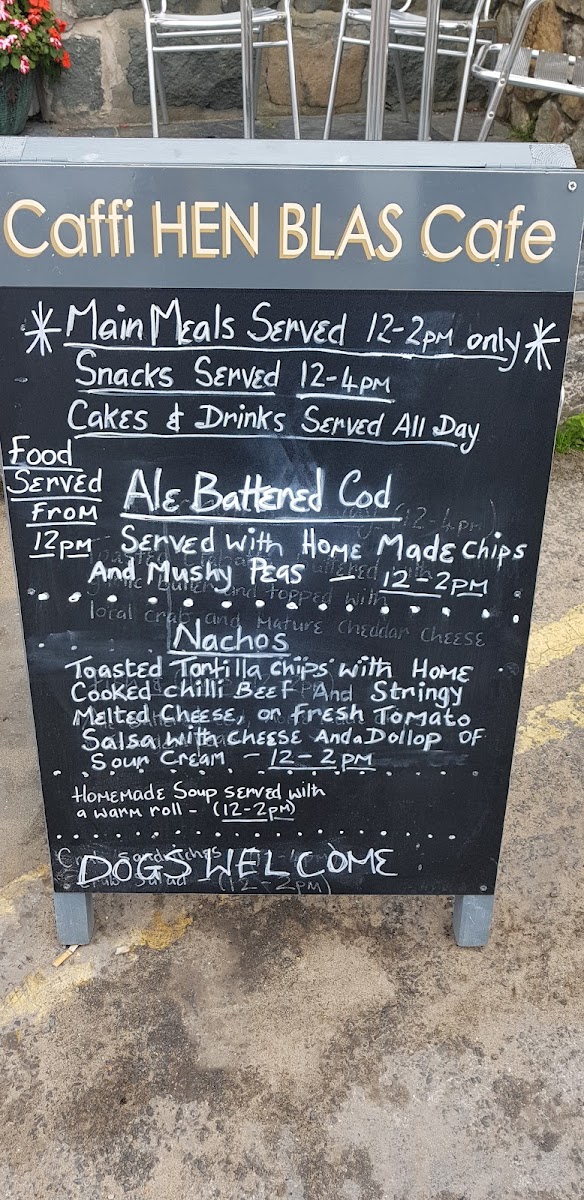 Caffi HEN BLAS Cafe
* Main Meals Served 12-2pm only *
Snacks Served 12-4pm
Cakes & Drinks Served All Day
Food
Served
From
12pm
Ale Battered Cod
Served with Home Made Chips
And Mushy Peas - 12-2pm
local crab and Mature Cheddar Cheese
Nachos
Toasted Tortilla Chips with Home
Cooked Chilli Beef And Stringy
Melted Cheese, or Fresh Tomato
Salsa with Cheese And a Dollop OF
Sour Cream - 12-2pm
Homemade Soup served with
a warm roll - (12-2pm)
DOGS WELCOME
(12-2pm)